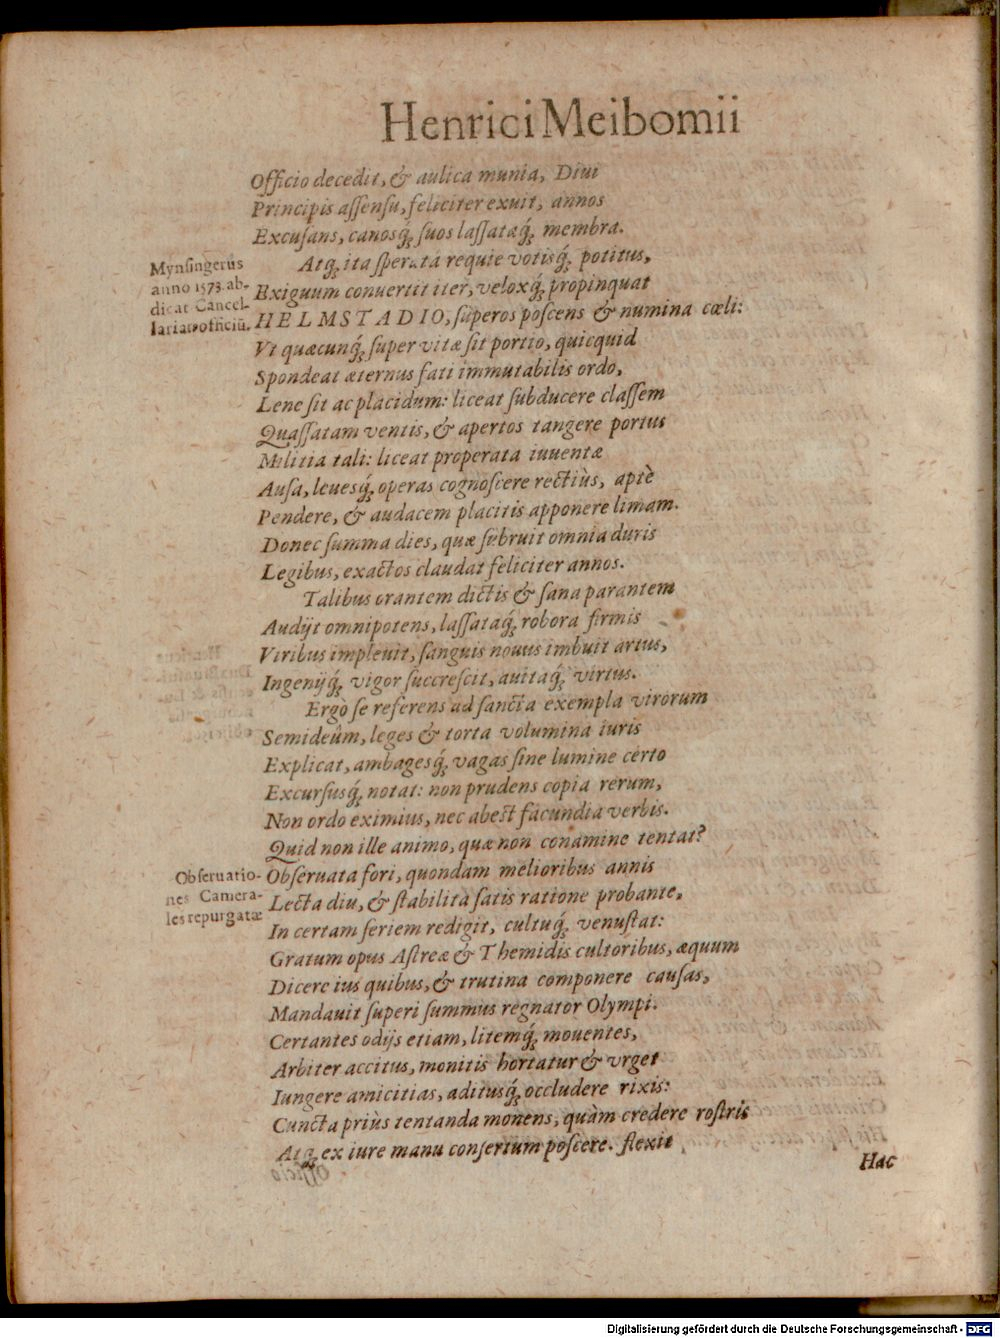 Henrici Meibomii
Officio decedit, & aulica munia, Diui
Principis assensu, feliciter exuit, annos
Excusans, canosq́; suos lassataq́; membra.
Atq; ita sperata requie votisq́; potitus,
Mynsingerus
anno 1573. ab-
dicat Cancel-
lariatꝰ officiū.
Exiguum conuertit iter, veloxq́; propinquat
HELMSTADIO, superos poscens & numina cœli:
Vt quæcunq́; super vitæ sit portio, quicquid
Spondeat æternus fati immutabilis ordo,
Lene sit ac placidum: liceat subducere classem
Quassatam ventis, & apertos tangere portus
Militia tali: liceat properata iuuentæ
Ausa, leuesq́; operas cognoscere rectiùs, aptè
Pendere, & audacem placitis apponere limam.
Donec summa dies, quæ subruit omnia duris
Legibus, exactos claudat feliciter annos.
Talibus orantem dictis & sana parantem
Audijt omnipotens, lassataq́; robora firmis
Viribus impleuit, sanguis nouus imbuit artus,
Ingenijq́; vigor succrescit, auitaq́; virtus.
Ergò se referens ad sancta exempla virorum
Semideûm, leges & torta volumina iuris
Explicat, ambagesq́; vagas sine lumine certo
Excursusq́; notat: non prudens copia rerum,
Non ordo eximius, nec abest facundia verbis.
Quid non ille animo, quæ non conamine tentat?
Obseruatio-
nes Camera-
les repurgatæ
Obseruata fori, quondam melioribus annis
Lecta diu, & stabilità satis ratione probante,
In certam seriem redigit, cultuq́; venustat:
Gratum opus Astreæ & Themidis cultoribus, æquum
Dicere ius quibus, & trutina componere causas,
Mandauit superi summus regnator Olympi.
Certantes odijs etiam, litemq́; mouentes,
Arbiter accitus, monitis hortatur & vrget
Iungere amicitias, aditusq́; occludere rixis:
Cuncta priùs tentanda monens, quàm credere rostris
Atq; ex iure manu consertum poscere. flexit
Hac
Digitalisierung gefördert durch die Deutsche Forschungsgemeinschaft - DFG